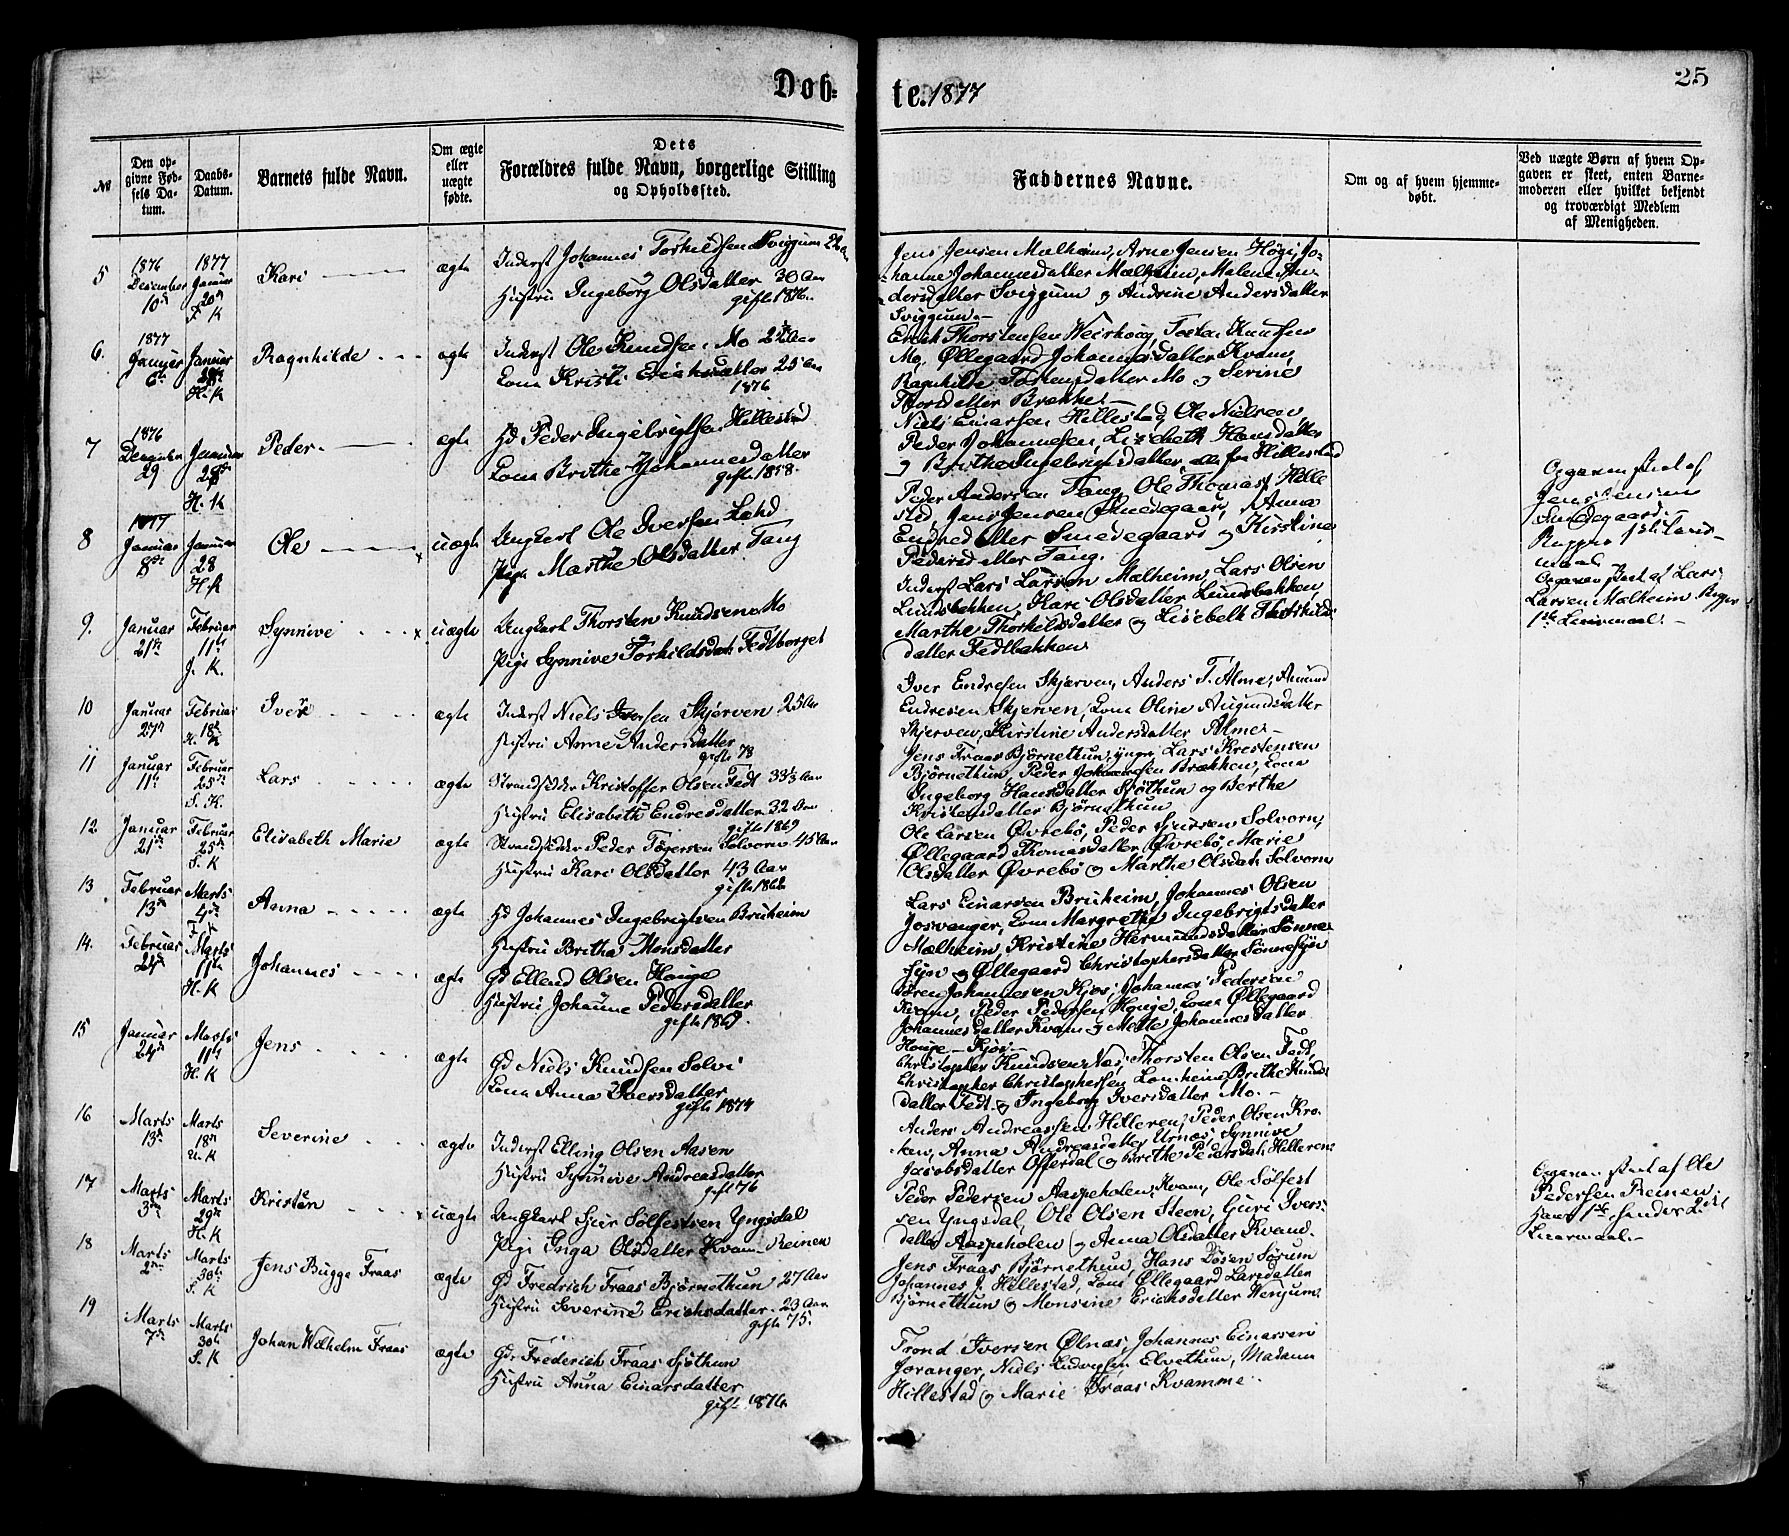 Døb- te. 1877
25
№
Den opgivne Fødsels Datum.
Daabs-Datum.
Barnets fulde Navn.
Om ægte eller uægte fødte.
Dets Forældres fulde Navn, borgerlige Stilling og Opholdssted.
Faddernes Navne.
Om og af hvem hjemmedøbt.
Ved uægte Børn af hvem Opgaven er skeet, enten Barnemoderen eller hvilket bekjendt og troværdigt Medlem af Menigheden.
5 1876 December 10de 1877 Januar 20de F. K Kari ægte
Inderst Johannes Torkildsen Sviggum
Hustru Ingeborg Olsdatter 30 Aar
gift 1876.
Jens Jensen Mælheim, Arne Jensen Høgi, Jo-
hanne Johannesdatter Mælheim, Malene An-
dersdatter Sviggum og Andrine Andersdatter
Sviggum.
6. 1877 Januar 6te Januar H. K Ragnhilde ægte
Inderst Ole Knudsen Mo
Kona Kristi Erichsdatter 25 Aar
1876
Erich Thorstensen Tosten Knudsen
Mo, Øllegaard Johannesdatter Kvam,
Ragnhilde Tostensdatter Mo og Serine
Thorsdatter Brække.
7 1876 December 29 Januar 28 H. K Peder ægte
Gd Peder Ingebrigtsen Hillestad
Kona Brithe Johannesdatter
gift 1858.
Niels Einarsen Hillestad, Ole Nielsen,
Peder Johannesen, Lisebeth Hansdatter
og Brithe Ingebrigtsdatter, alle fra Hillestad
8 1877 Januar 8de Januar 28 H. K Ole uægte
Ungkarl Ole Iversen Lahd
Pige Marthe Olsdatter Tang
Peder Andersen Tang, Ole Thomas. Hille
stad, Jens Jensen Smedegaar, Anna
Endredatter Smedegaard og Kirstine
Pedersdatter Tang.
Opgaven skeet af
Jens Jensen
Smedegaard.
Begges 1ste Leier-
maal
9. Januar 21de Februar 11te J. K. Synnive uægte
Ungkarl Thorsten Knudsen Mo
Pige Synnive Torkildsdat. Fedtborget
Inderst Lars Larsen Mælheim, Lars Olsen
Lundsbakken, Kari Olsdatter Lundsbakken
Marthe Thorkildsdatter og Lisebeth Thorkilds
datter Fedtbakken
Opgaven skeet af Lars
Larsen Mælheim Begges
1ste Leiermaal.
10 Januar 27de Februar 18de H. K Iver ægte
Inderst Niels Iversen Skjerven 25 Aar
Hustru Anne Andersdatter
gift
Iver Endresen Skjerven, Anders T. Alme, Amund
Endresen Skjerven, Kona Oline Augundsdatter
Skjerven, Kirstine Andersdatter Alme
11 Januar 11te Februar 25de S. K. Lars ægte
Strandsidder Kristoffer Olsen Fedt
Hustru Elisabeth Endresdatter 32 Aar
gift 1869
Jens Fraas Bjørnethun, yngre Lars Krestensen
Bjørnethun, Peder Johannesen Brækken, Kona
Ingeborg Hansdatter Sjøthun og Berthe
Kristensdatter Bjørnethun
12 Januar 21de Februar 25de S. K Elisabeth Marie ægte
Strandsidder Peder Tøgersen Solvorn 45 Aar
Hustru Kari Olsdatter 43 Aar
gift
Ole Larsen Øvrebø, Peder Sjursen Solvorn,
Øllegaard Thomasdatter Øvrebø, Marie
Olsdatter Øvrebø og Marthe Olsdat. Solvorn
13 Februar 13de Marts 4de F. K Anna ægte
Gd Johannes Ingebrigtsen Bruheim
Hustru Britha Monsdatter
Lars Einarsen Bruheim, Johannes Olsen
Josvanger, Kona Margrethe Ingebrigtsdatter
Mælheim, Kristine Hermundsdatter Sønne-
syn og Øllegaard Christophersdatter Sønnesyn
14. Februar 24de Marts 11te H. K Johannes ægte
Gd Ellend Olsen Houge
Hustru Johanne Pedersdatter
gift 1869.
Søren Johannesen Kjos, Johannes Pedersen
Kvam, Peder Pedersen Houge, Kona Øllegaard
Johannesdatter Kvam og Mette Johannesdatter
Houge - Kjøs.
15 Januar 24de Marts 11te H. K Jens ægte
Gd Niels Knudsen Solvi
Kona Anna Iversdatter
gift 1874
Christopher Knudsen Næs, Thorsten Olsen Fedt,
Christopher Christophersen Lomheim, Brithe Knuds
datter Fedt og Ingeborg Iversdatter Mo.
16 Marts 13de Marts 18de U. K Severine ægte
Inderst Elling Olsen Aasen
Hustru Synnive Andreasdatter
gift 76
Anders Andreassen Hilleren, Peder Olsen Kro-
ken, Anna Andreasdatter Urnæs, Synnive
Jacobsdatter Offerdal og Brithe Pedersdat. Hilleren
17 Marts 3die Marts 29de H. K Kristen uægte
Ungkarl Sjur Sølfestsen Yngsdal
Pige Inga Olsdatter Kvam - Reinen
Peder Pedersen Aaspeholen, Kvam, Ole Sølfest
sen Yngsdal, Ole Olsen Steen, Guri Ivers-
datter Aaspeholen og Anna Olsdatter Kvam.
Opgaven skeet af Ole
Pedersen Reinen
Hans 1ste hendes 2det
Leiermaal.
18 Marts 2den Marts 30te S. K Jens Bugge Fraas ægte
Gd Fredrich Fraas Bjørnethun, 27 Aar
Hustru Severine Erichsdatter 23 Aar
gift 75.
Jens Fraas Bjørnethun, Hans Dosen Sørum
Johannes J. Hillestad, Kona Øllegaard Larsdatter
Bjørnethun og Monsine Erichsdatter Venjum.
19 Marts 7de Marts 30te S. K Johan Wilhelm Fraas ægte
Gdr Frederich Fraas Sjøthun
Hustru Anna Einarsdatter
gift 1876.
Trond Iversen Ølnæs, Johannes Einarsen
Joranger, Niels Ludvigsen Elvethun, Madam
Hillestad og Marie Fraas Kvamme.